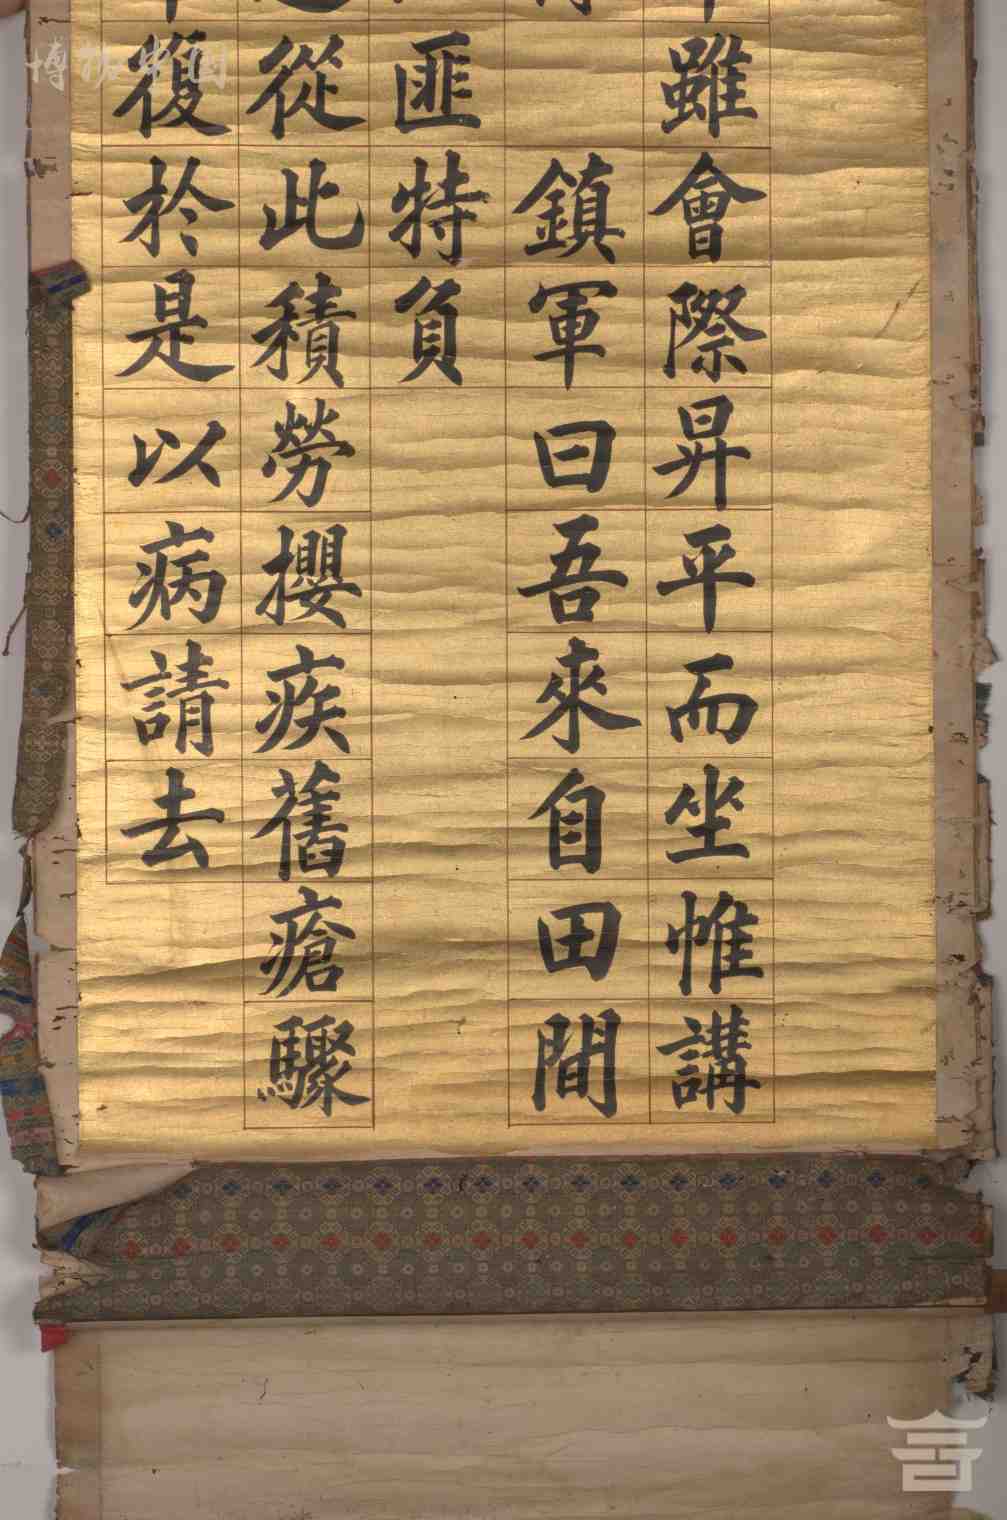 雖會際昇平而坐帷講
鎮軍曰吾來自田間
匪特負
從此積勞攖疾舊瘡驟
復於是以病請去
博物中国